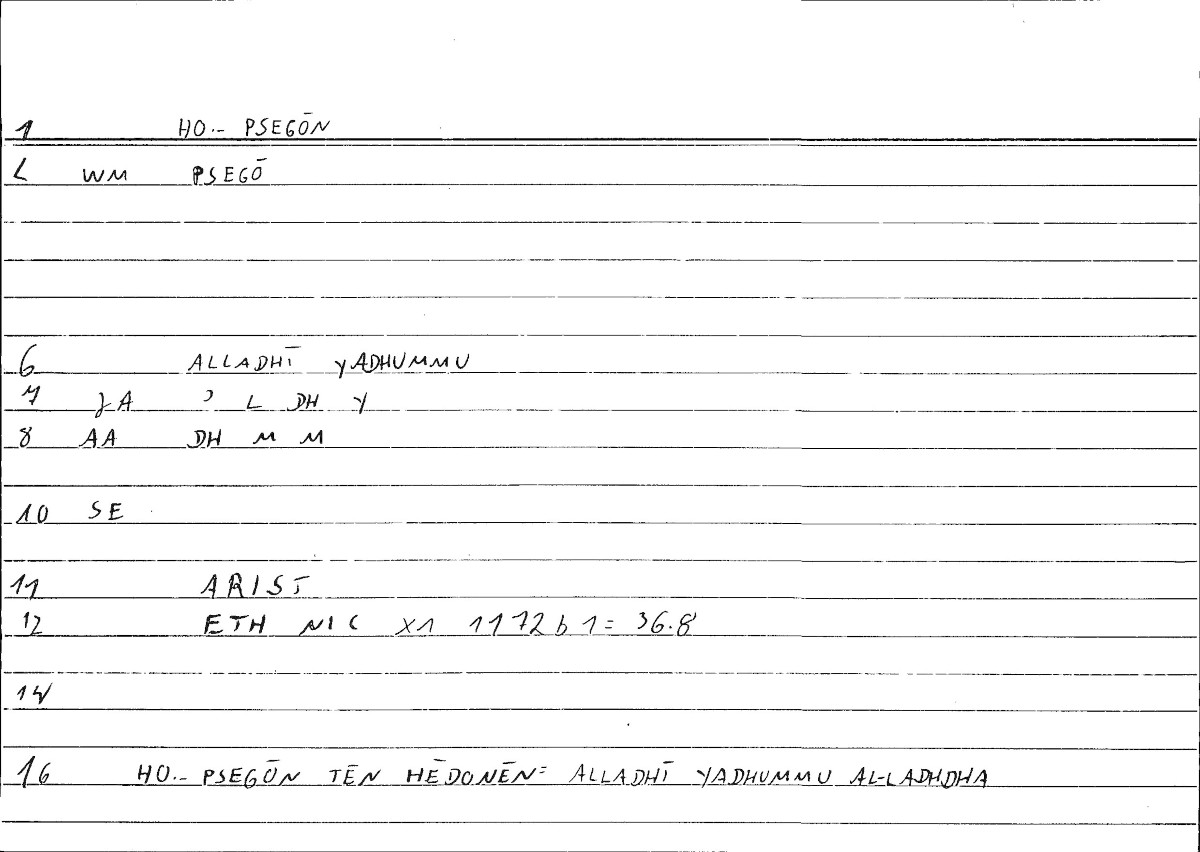 1 HO.- PSEGŌN
2 WM PSEGŌ
6 ALLADHĪ YADHUMMU
7 JA ʾ L DH Y
8 AA DH M M
10 SE
11 ARIST
12 ETH NIC X1 1172b1= 36.8
14
16 HO.- PSEGŌN TĒN HĒDONĒN= ALLADHĪ YADHUMMU AL-LADHDHA